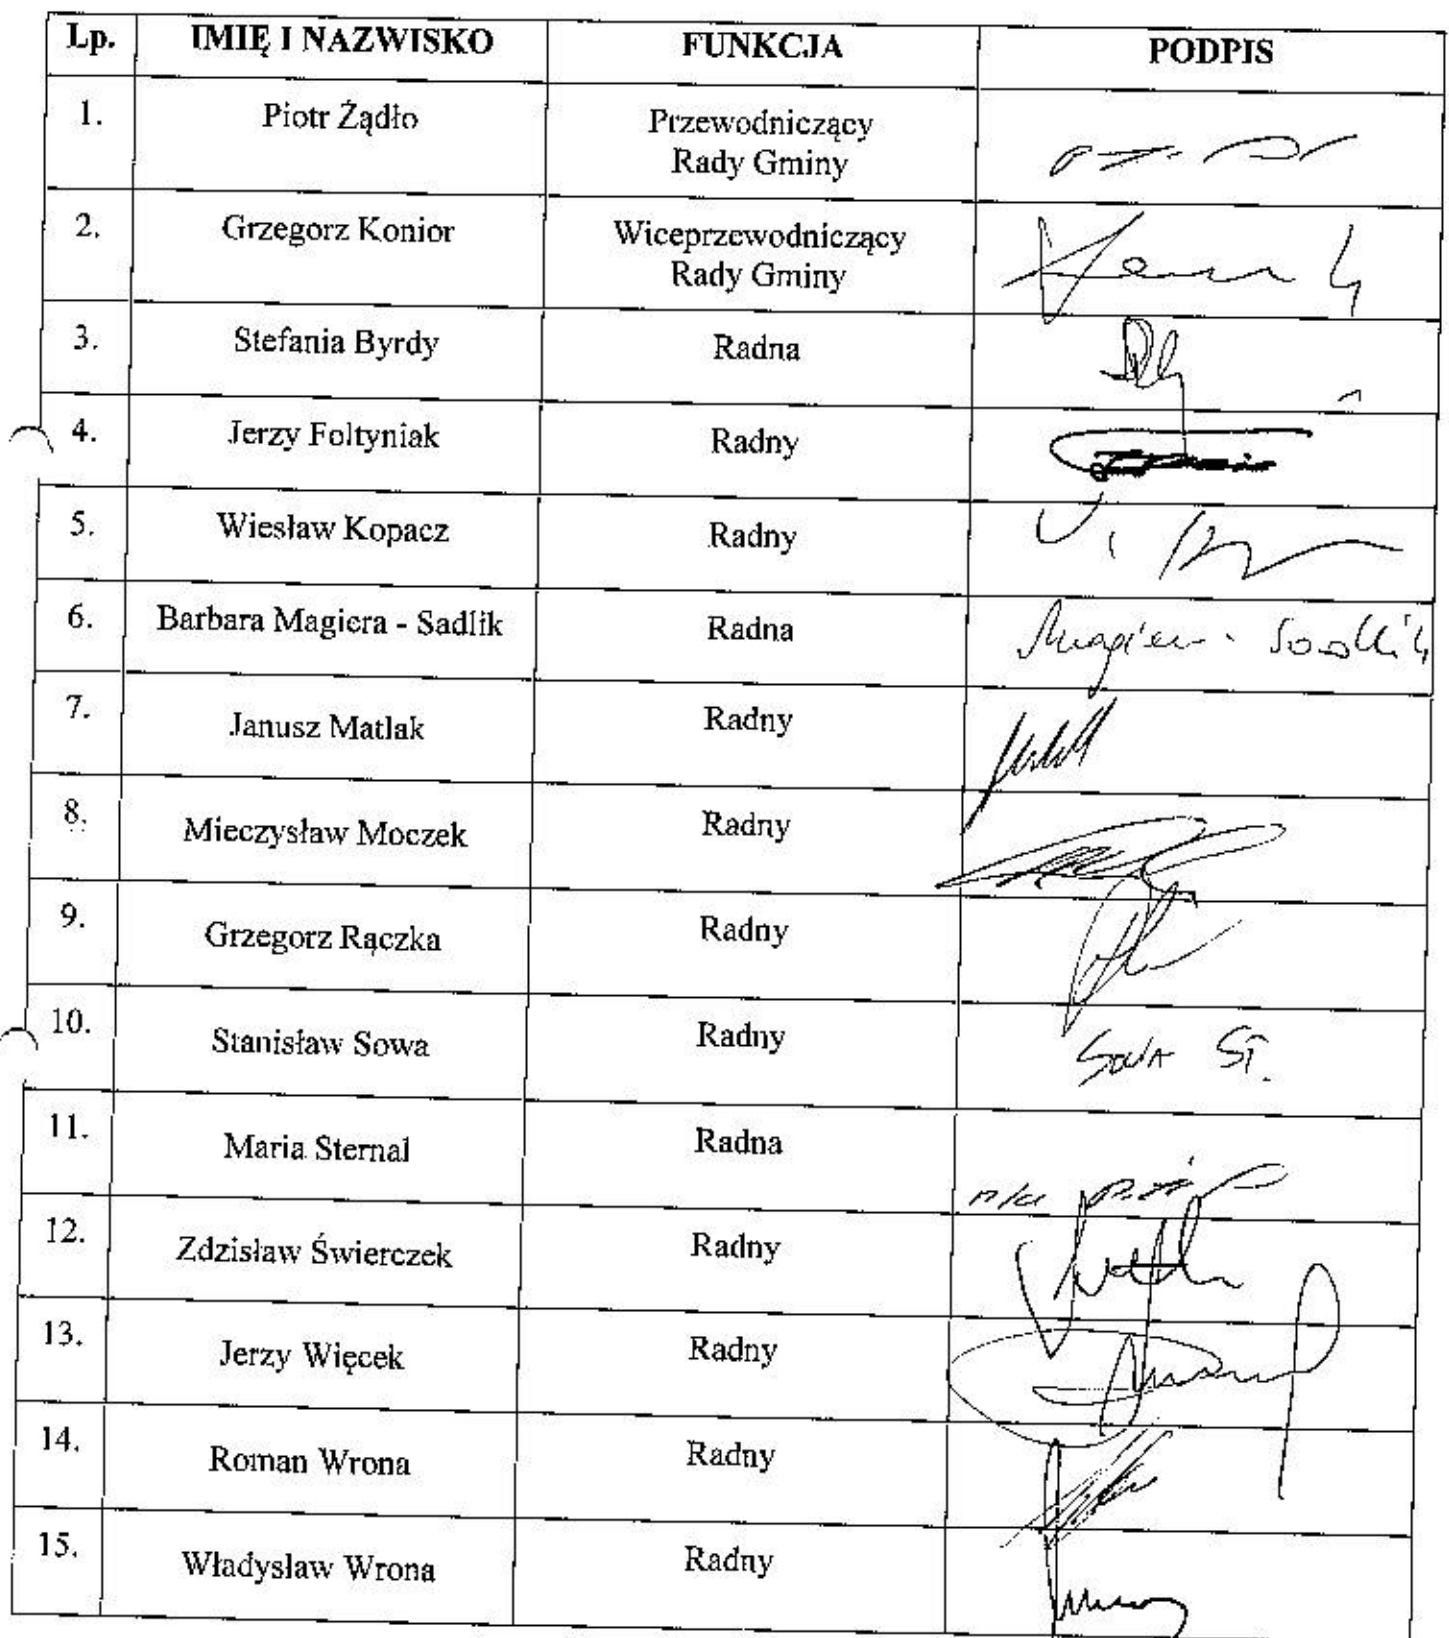 Lp. IMIĘ I NAZWISKO FUNKCJA PODPIS
1. Piotr Żądło Przewodniczący
Rady Gminy
2. Grzegorz Konior Wiceprzewodniczący
Rady Gminy
3. Stefania Byrdy Radna
4. Jerzy Foltyniak Radny
5. Wiesław Kopacz Radny
6. Barbara Magiera - Sadlik Radna Magiera - Sadlik
7. Janusz Matlak Radny
8. Mieczysław Moczek Radny
9. Grzegorz Rączka Radny
10. Stanisław Sowa Radny SOWA ST.
11. Maria Sternal Radna
12. Zdzisław Świerczek Radny
13. Jerzy Więcek Radny
14. Roman Wrona Radny
15. Władysław Wrona Radny